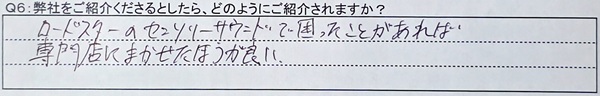 Q6:弊社をご紹介くださるとしたら、どのようにご紹介されますか？
ロードスターのセンソリーサウンドで困ったことがあれば
専門店にまかせたほうが良い.